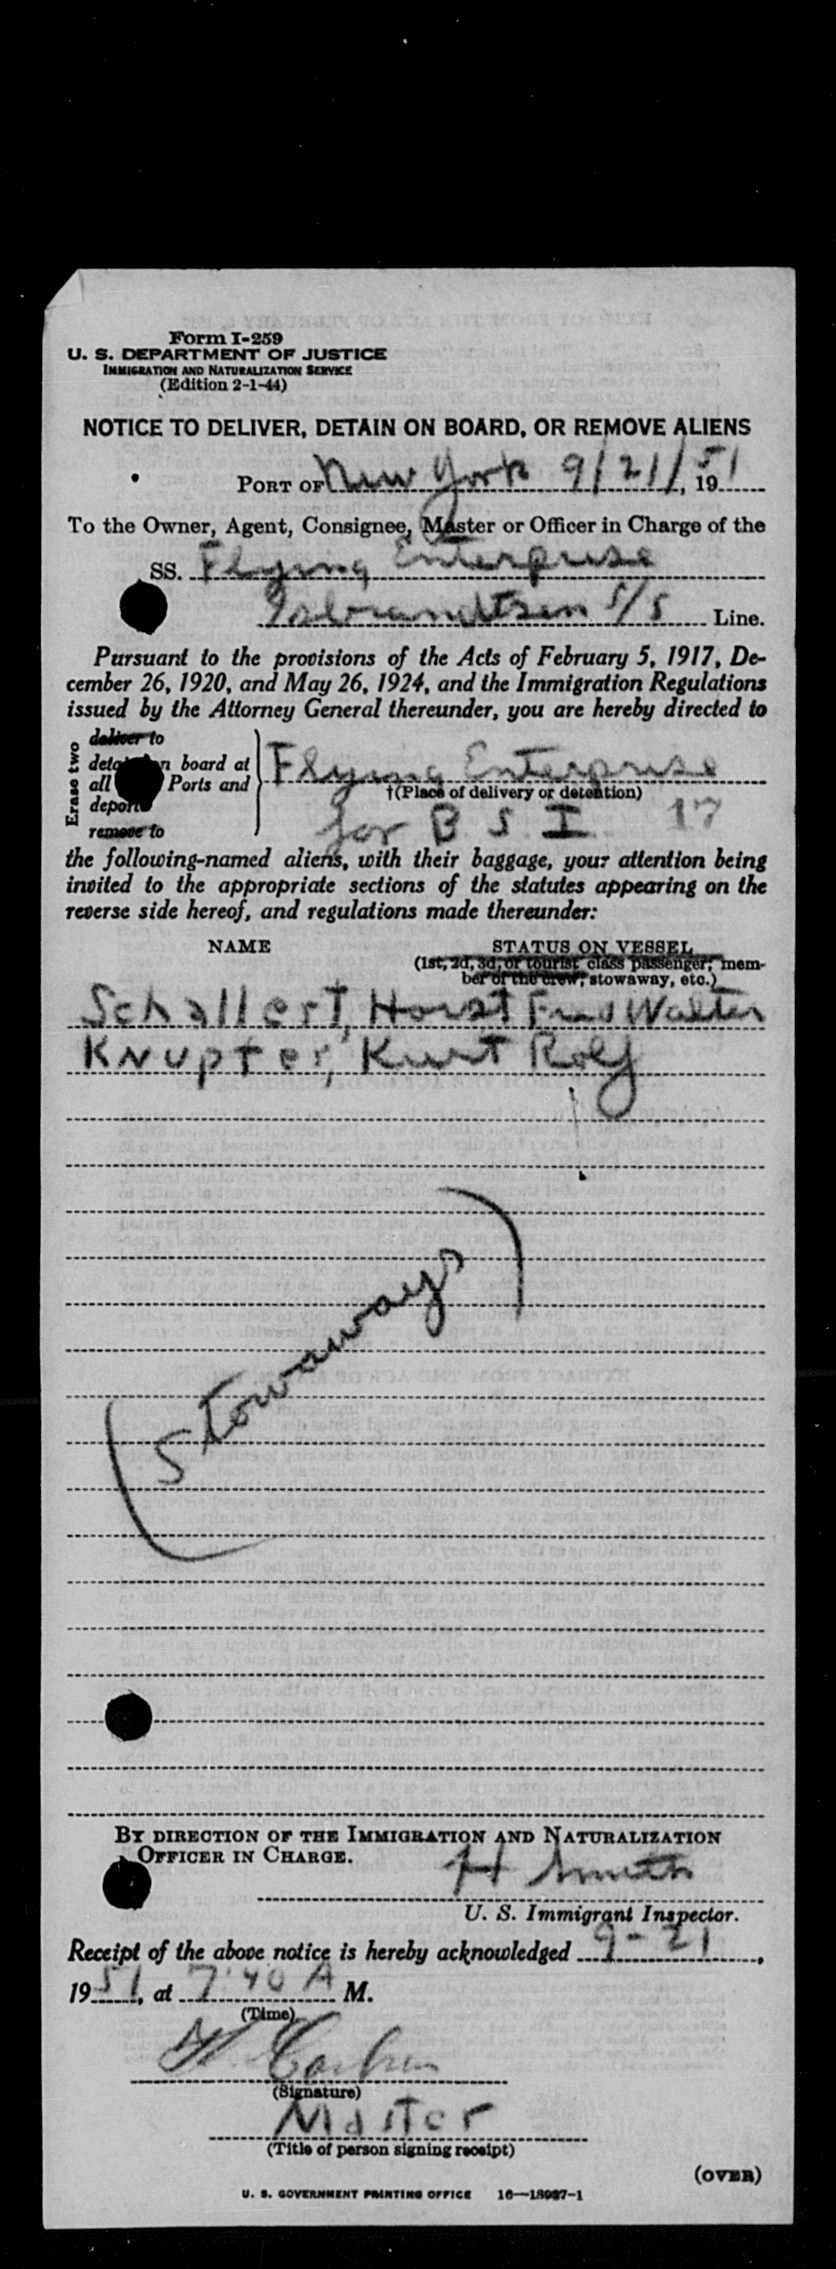 Form I-259
U. S. DEPARTMENT OF JUSTICE
IMMIGRATION AND NATURALIZATION SERVICE
(Edition 2-1-44)
NOTICE TO DELIVER, DETAIN ON BOARD, OR REMOVE ALIENS
PORT OF New York 9/21/, 1951
To the Owner, Agent, Consignee, Master or Officer in Charge of the
SS. Flying Enterprise
Isbrandtsen S/S Line.
Pursuant to the provisions of the Acts of February 5, 1917, De-
cember 26, 1920, and May 26, 1924, and the Immigration Regulations
issued by the Attorney General thereunder, you are hereby directed to
Erase two
deliver to
detain on board at
all Ports and
deport
remove to
Flying Enterprise
†(Place of delivery or detention)
for B S I 17
the following-named aliens, with their baggage, your attention being
invited to the appropriate sections of the statutes appearing on the
reverse side hereof, and regulations made thereunder:
NAME STATUS ON VESSEL
(1st, 2d, 3d, or tourist class passenger, mem-
ber of the crew, stowaway, etc.)
Schallert, Horst Fred Walter
Knupfer, Kurt Rolf
(Stowaways)
BY DIRECTION OF THE IMMIGRATION AND NATURALIZATION
OFFICER IN CHARGE.
H Smith
U. S. Immigrant Inspector.
Receipt of the above notice is hereby acknowledged 9-21,
1951, at 7:40 A M.
(Time)
(Signature)
Master
(Title of person signing receipt)
(OVER)
U. S. GOVERNMENT PRINTING OFFICE 16—18937-1